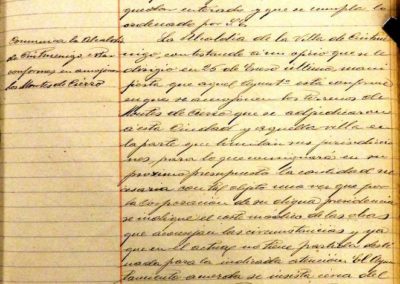 quedar enterado y que se cumpla lo
ordenado por S.E.
Comunica la Alcaldía
de Cintruenigo estar
conformes en amojonar
los Montes de Cierzo
La Alcaldia de la Villa de Cintrue-
nigo, contestando á un oficio que se le
dirigió en 25 de Enero último mani-
fiesta que aquel Ayunto está conforme
en que se amojonen los terrenos de
Montes de Cierzo que se adjudicaron
á esta Ciudad y aquella villa en
la parte que limitan sus jurisdiccio-
nes, para lo que consignará en su
próximo presupuesto la cantidad ne-
cesaria con tal objeto una vez que por
la Corporacion de su digna presidencia
se indique el coste de las obras
que aconsejen las circunstancias y ya
que en el actual no tiene partida desti-
nada para la indicada atencion. El Ayun-
tamiento acuerda se insista cerca del